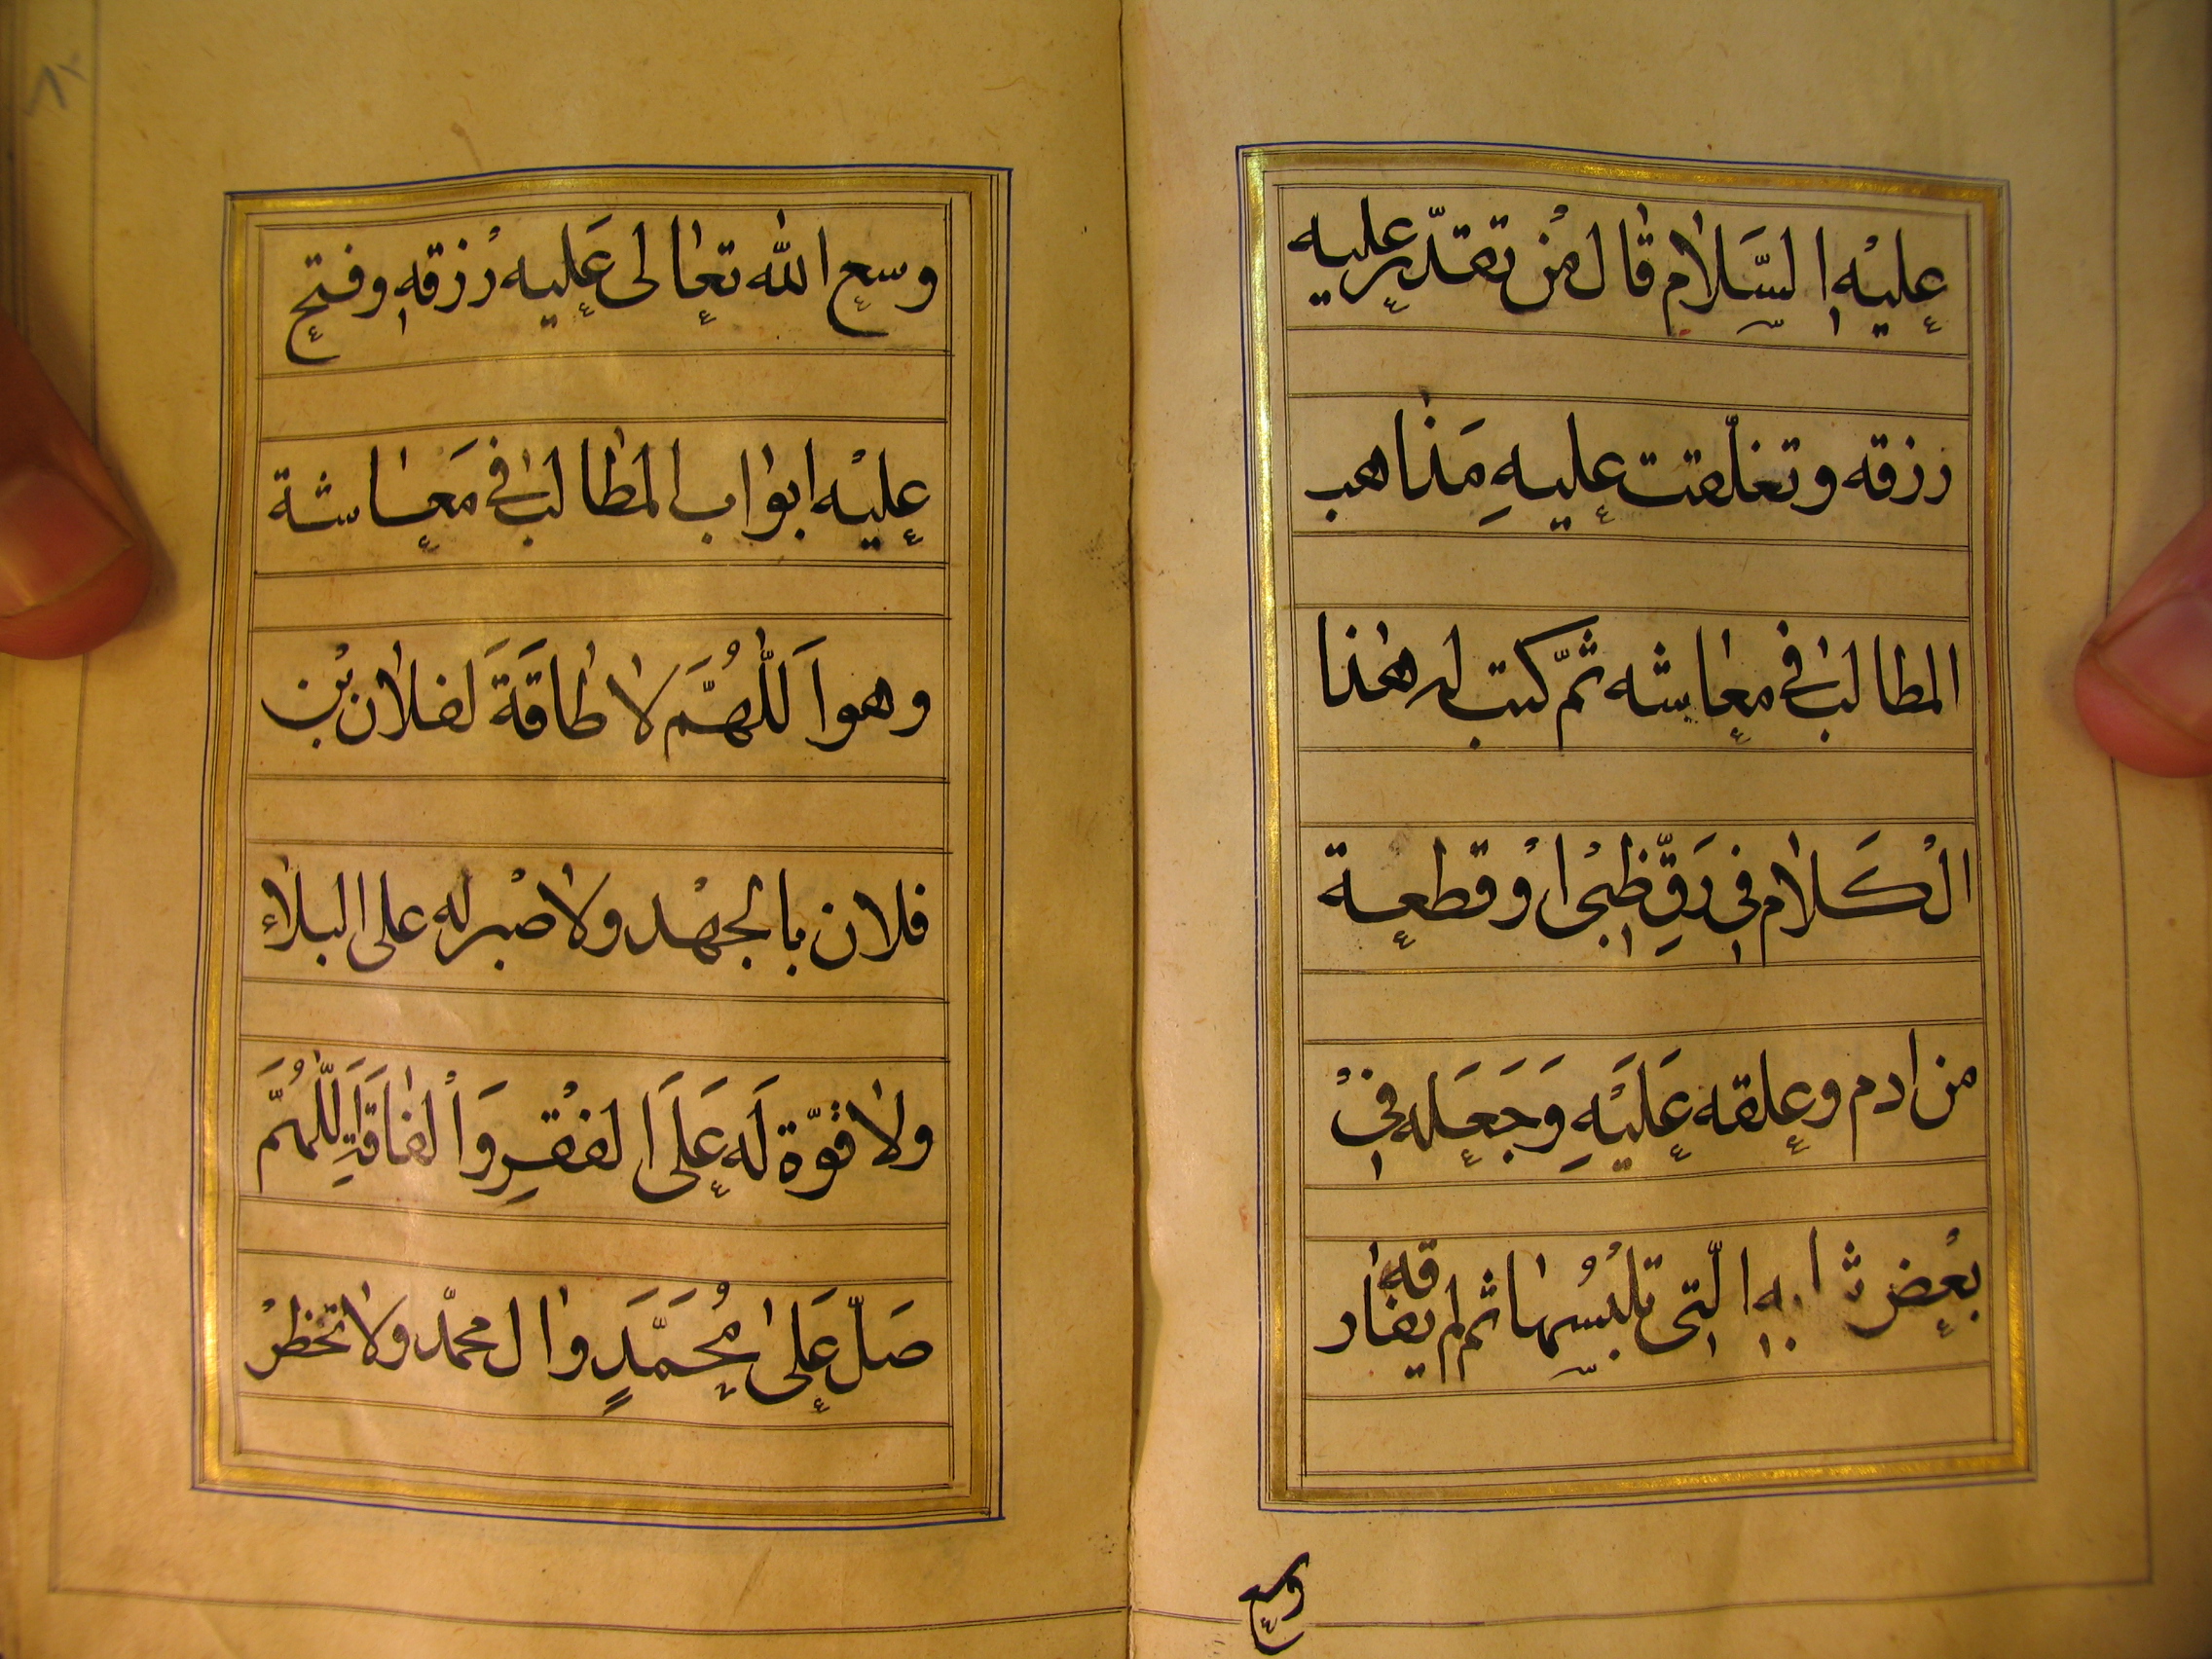 عليْه السَّلام قال مُن تقدّر عليه
رزقه وتغلّقت عليهِ مَذاهب
المطالب في معاشه ثمّ كتب له هٰذا
الْكَلام في رَقِّ ظبْى اوْ قطعة
من ادم وعلقه عَلَيْهِ وَجَعَله فيْ
بعْض ثيابه الّتى تلبْسُها ثم لم يفارقه
وسع
وسع الله تعالى عَليه رُزقه وفتح
عليْه ابواب المطالب في مَعاشة
وهو اَللّٰهُمَّ لا طاقَةَ لفلان بْن
فلان بالجهْد ولا صْبر له على البلاء
ولا قوّة لَه عَلَى الفْقرِ وَاْلفاقَةِ اَللّٰهُمَّ
صَلّ عَلى مُحَمَّدٍ وال محمّد ولا تحظرْ
٨٢